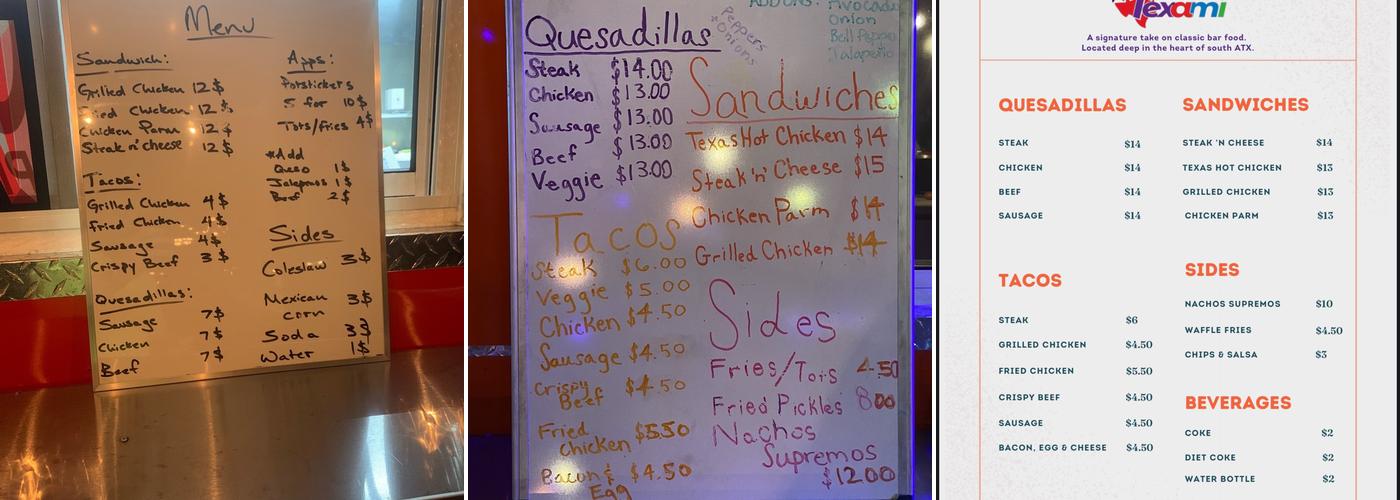 Menu
Sandwich:
Grilled Chicken 12$
Fried Chicken 12$
Chicken Parm 12$
Steak n' cheese 12$
Tacos:
Grilled Chicken 4$
Fried Chicken 4$
Sausage 4$
Crispy Beef 3$
Quesadillas:
Sausage 7$
Chicken 7$
Beef 7$
Apps:
Potstickers
5 for 10$
Tots/fries 4$
*Add
Queso 1$
Jalepenos 1$
Beef 2$
Sides
Coleslaw 3$
Mexican 3$
corn
Soda 3$
Water 1$
Quesadillas
Steak $14.00
Chicken $13.00
Sausage $13.00
Beef $13.00
Veggie $13.00
Peppers
+ Onions
ADDONS: Avocado
Onion
Bell Pepper
Jalapeño
Sandwiches
Texas Hot Chicken $14
Steak 'n' Cheese $15
Chicken Parm $14
Grilled Chicken $14
Tacos
Steak $6.00
Veggie $5.00
Chicken $4.50
Sausage $4.50
Crispy
Beef $4.50
Fried
Chicken $5.50
Bacon & $4.50
Egg
Sides
Fries/Tots 4.50
Fried Pickles 8.00
Nachos
Supremos
$12.00
Texami
A signature take on classic bar food.
Located deep in the heart of south ATX.
QUESADILLAS
STEAK $14
CHICKEN $14
BEEF $14
SAUSAGE $14
SANDWICHES
STEAK 'N CHEESE $14
TEXAS HOT CHICKEN $13
GRILLED CHICKEN $13
CHICKEN PARM $13
TACOS
STEAK $6
GRILLED CHICKEN $4.50
FRIED CHICKEN $5.50
CRISPY BEEF $4.50
SAUSAGE $4.50
BACON, EGG & CHEESE $4.50
SIDES
NACHOS SUPREMOS $10
WAFFLE FRIES $4.50
CHIPS & SALSA $3
BEVERAGES
COKE $2
DIET COKE $2
WATER BOTTLE $2